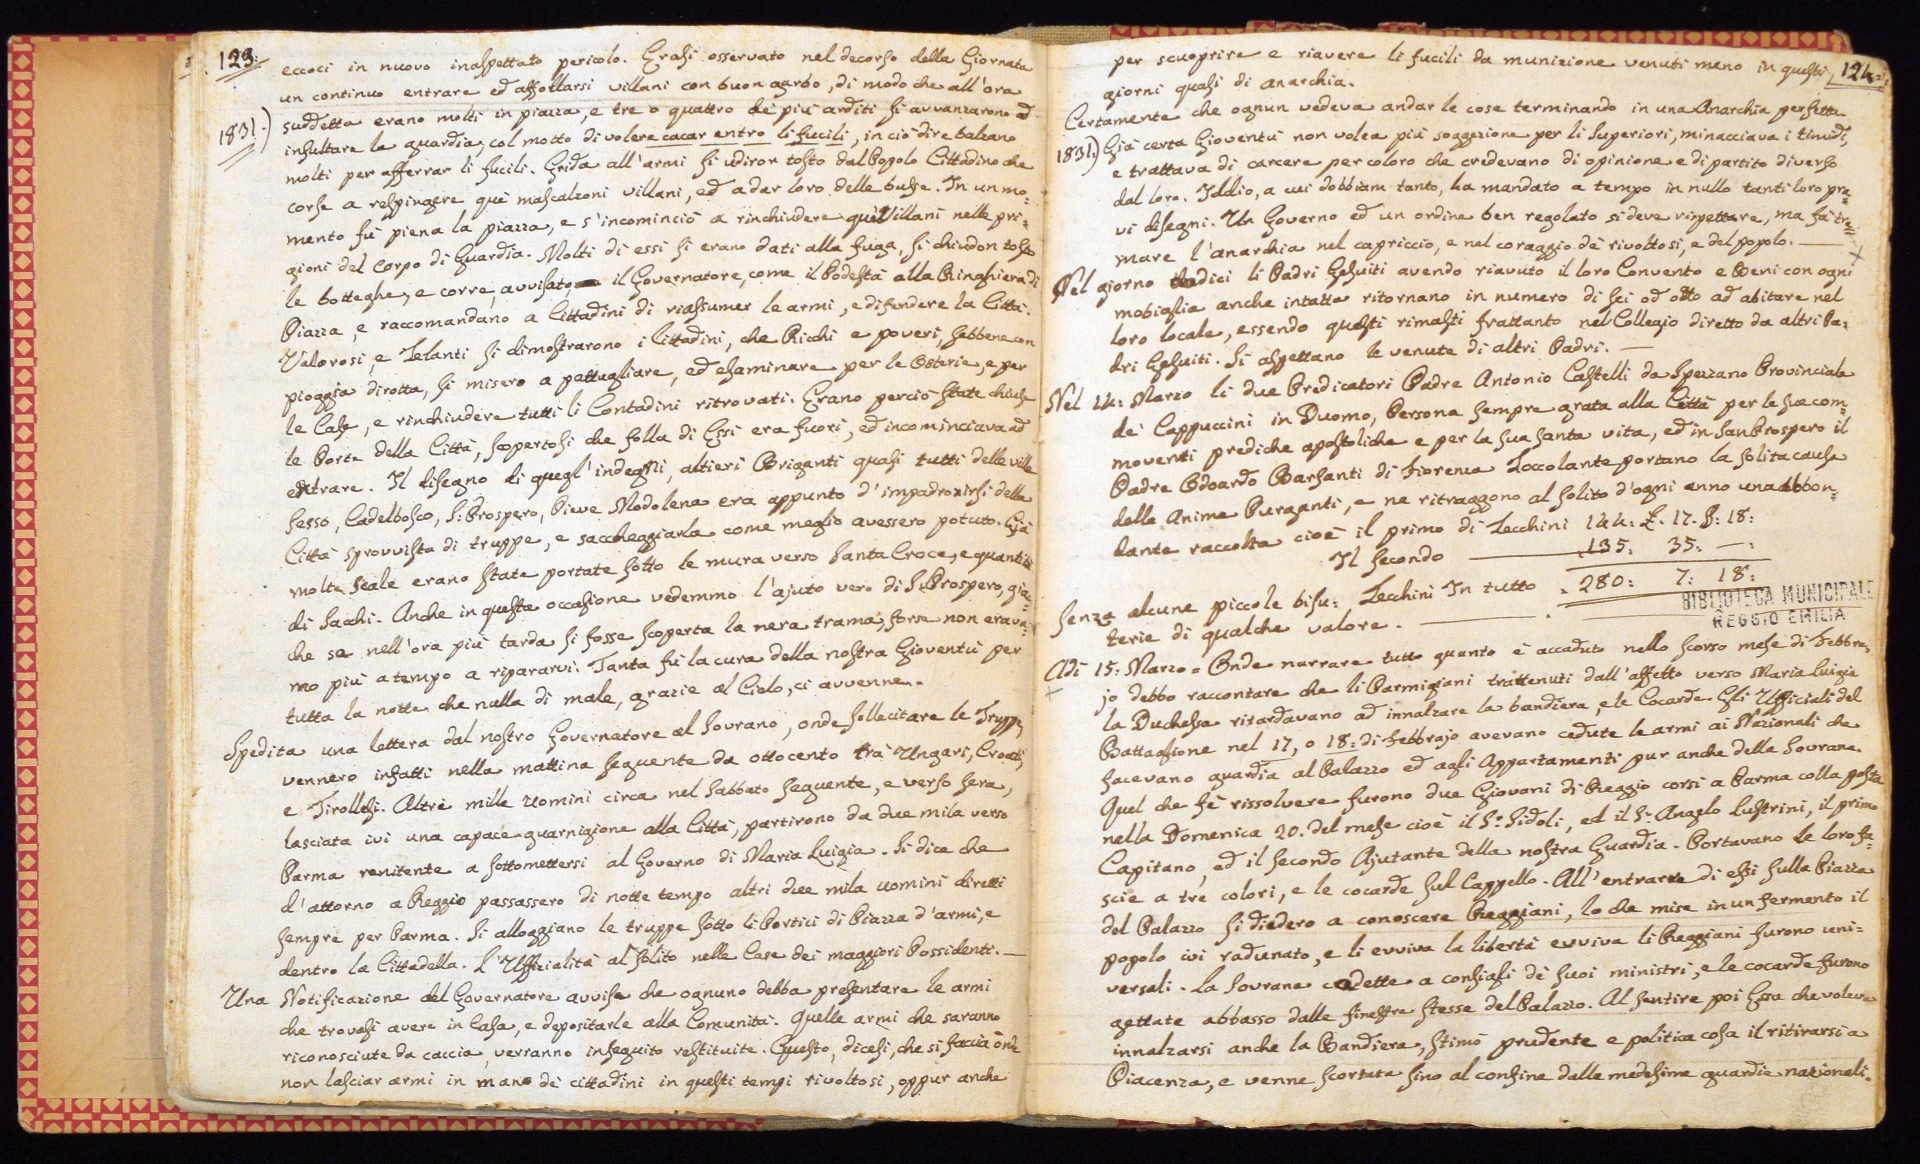 123.
eccoci in nuovo inaspettato pericolo. Erasi osservato nel decorso della Giornata
un continuo entrare ed affollarsi villani con buon garbo, di modo che all'ora
1831.)
suddetta erano molti in piazza, e tre o quattro de più arditi si avvanzarono ad
insultare la guardia, col motto di volere cacar entro li fucili, in ciò dire balzano
molti per afferrar li fucili. Grida all'armi si udiron tosto dal Popolo Cittadino che
corse a respingere què mascalzoni villani, ed a dar loro delle busse. In un mo=
mento fù piena la piazza, e s'incominciò a rinchiudere què Villani nelle pri=
gioni del Corpo di Guardia. Molti di essi si erano dati alla fuga, si chiudon tosto
le botteghe, e corre, avvisato il Governatore, come il Podestà alla Ringhiera di
Piazza, e raccomandano a Cittadini di riassumer le armi, e difendere la Città.
Valorosi, e Zelanti si dimostrarono i Cittadini, che Ricchi e poveri, sebbene con
pioggia dirotta, si misero a pattugliare, ed esaminare per le Osterie, e per
le Case, e rinchiudere tutti li Contadini ritrovati. Erano perciò state chiuse
le Porte della Città, scopertosi che folla di Essi era fuori, ed incominciava ad
entrare. Il disegno di quegl'indegni, altieri Briganti quasi tutti delle ville
Sesso, Cadelbosco, S. Prospero, Pieve Modolena era appunto d'impadronirsi della
Città sprovvista di truppe, e saccheggiarla come meglio avessero potuto. Già
molte scale erano state portate sotto le mura verso Santa Croce, e quantità
di Sacchi. Anche in questa occasione vedemmo l'ajuto vero di S. Prospero, gia=
che se nell'ora più tarda si fosse scoperta la nera trama, forse non erava=
mo più a tempo a ripararvi. Tanta fù la cura della nostra Gioventù per
tutta la notte che nulla di male, grazie al Cielo, ci avvenne.
Spedita una lettera dal nostro Governatore al Sovrano, onde sollecitare le Truppe,
vennero infatti nella mattina seguente da ottocento trà Ungari, Croati,
e Tirollesi. Altre mille uomini circa nel Sabbato seguente, e verso sera,
lasciata ivi una capace guarnigione alla Città, partirono da due mila verso
Parma renitente a sottomettersi al Governo di Maria Luigia. Si dice che
d'attorno a Reggio passassero di notte tempo altri due mila uomini diretti
sempre per Parma. Si alloggiano le truppe sotto li Portici di Piazza d'armi, e
dentro la Cittadella. L'Uffizialità al solito nelle Case dei maggiori Possidenti.
Una Notificazione del Governatore avvisa che ognuno debba presentare le armi
che trovasi avere in Casa, e depositarle alla Comunità. Quelle armi che saranno
riconosciute da caccia, verranno inseguito restituite. Questo, dicesi, che si faccia onde
non lasciar armi in mano de cittadini in questi tempi rivoltosi, oppur anche
124.
per scuoprire e riavere li fucili da munizione venuti meno in questi
giorni quasi di anarchia.
Certamente che ognun vedeva andar le cose terminando in una Anarchia perfetta
1831.)
Già certa Gioventù non volea più soggezione per li Superiori, minacciava i timidi,
e trattava di carcere per coloro che credevano di opinione e di partito diverso
dal loro. Iddio, a cui dobbiam tanto, ha mandato a tempo in nullo tanti loro pra=
vi disegni. Un Governo ed un ordine ben regolato si deve rispettare, ma fà tre=
mare l'anarchia nel capriccio, e nel coraggio de rivoltosi, e del popolo.
Nel giorno tredici li Padri Gesuiti avendo riavuto il loro Convento e Beni con ogni
mobiglia anche intatta ritornano in numero di sei od otto ad abitare nel
loro locale, essendo questi rimasti frattanto nel Collegio diretto da altri Pa=
dri Gesuiti. Si aspettano le venute di altri Padri.
Nel 14: Marzo li due Predicatori Padre Antonio Castelli da Spezzano Provinciale
de' Cappuccini in Duomo, Persona sempre grata alla Città per le sue com=
moventi prediche apostoliche e per la sua santa vita, ed in San Prospero il
Padre Odoardo Barsanti di Fiorenza Zoccolante portano la solita causa
delle Anime Purganti, e ne ritraggono al solito d'ogni anno una abbon=
dante raccolta cioè il primo di Zecchini 144: £. 17. S: 18:
Il secondo 135: 35: —:
Zecchini In tutto 280: 7: 18:
senza alcune piccole bisu=
terie di qualche valore.
BIBLIOTECA MUNICIPALE
REGGIO EMILIA
Adi 15: Marzo = Onde narrare tutto quanto è accaduto nello scorso mese di Febbra=
jo debbo raccontare che li Parmigiani trattenuti dall'affetto verso Maria Luigia
la Duchessa ritardavano ad innalzare la bandiera, e le Cocarde. Gli Ufficiali del
Battaglione nel 17, o 18: di Febbrajo avevano cedute le armi ai Nazionali che
facevano guardia al Palazzo ed agli Appartamenti pur anche della Sovrana.
Quel che fè rissolvere furono due Giovani di Reggio corsi a Parma colla posta
nella Domenica 20. del mese cioè il Sr. Sidoli, ed il Sr. Angelo Lustrini, il primo
Capitano, ed il secondo Ajutante della nostra Guardia. Portavano le loro fa=
scie a trè colori, e le cocarde sul Cappello. All'entrare di essi sulla Piazza
del Palazzo si diedero a conoscere Reggiani, lo che mise in un fermento il
popolo ivi radunato, e li evviva la libertà evviva li Reggiani furono uni=
versali. La Sovrana cedette a consigli de suoi ministri, e le cocarde furono
gettate abbasso dalle finestre stesse del Palazzo. Al sentire poi Essa che voleva
innalzarsi anche la Bandiera, stimò prudente e politica cosa il ritirarsi a
Piacenza, e venne scortata sino al confine dalle medesime guardie nazionali.